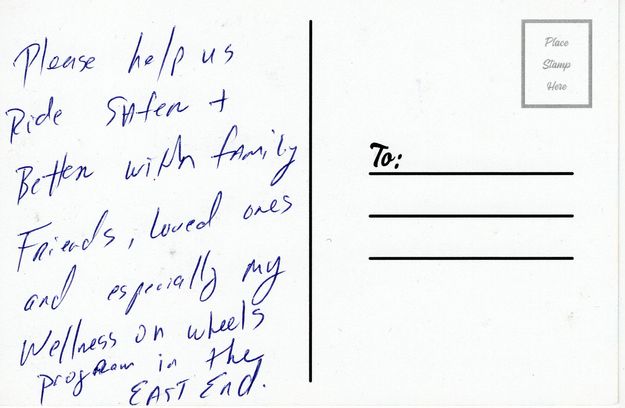 Please help us
Ride Safer +
Better with family
Friends, loved ones
and especially my
Wellness on wheels
program in the
EAST End.
Place
Stamp
Here
To: